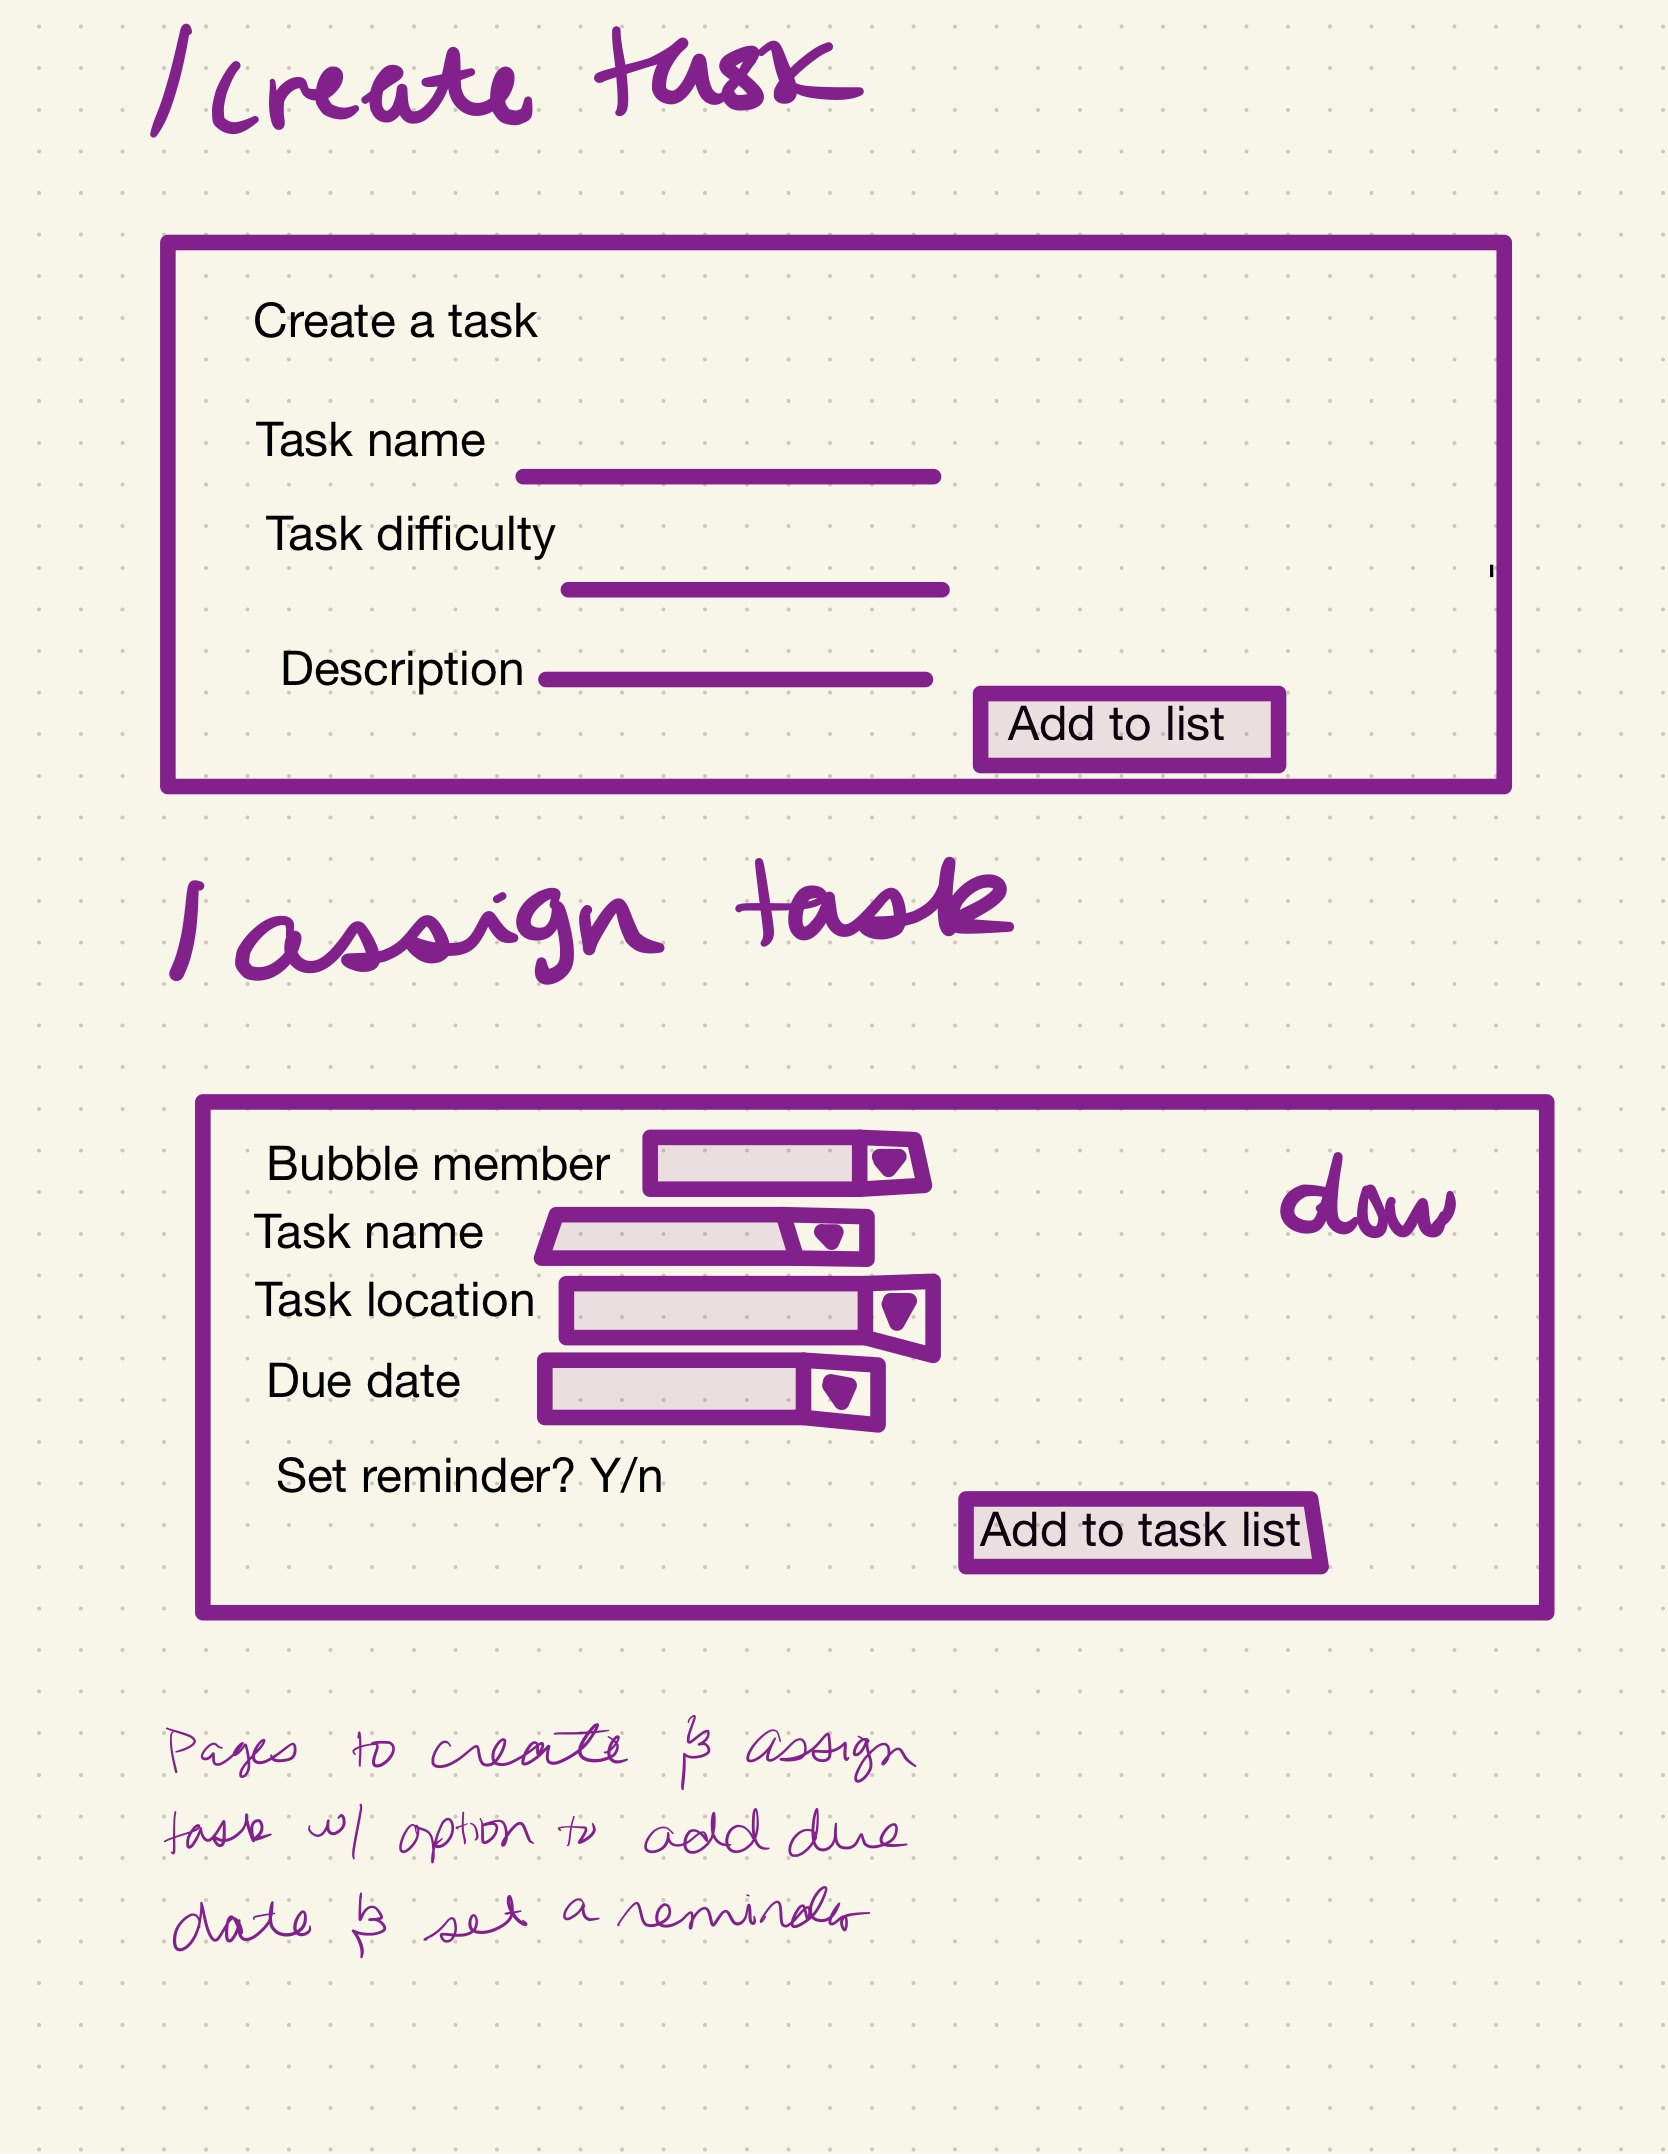 /create task
Create a task
Task name
Task difficulty
Description
Add to list
/assign task
Bubble member
dow
Task name
Task location
Due date
Set reminder? Y/n
Add to task list
Pages to create & assign
task w/ option to add due
date & set a reminder